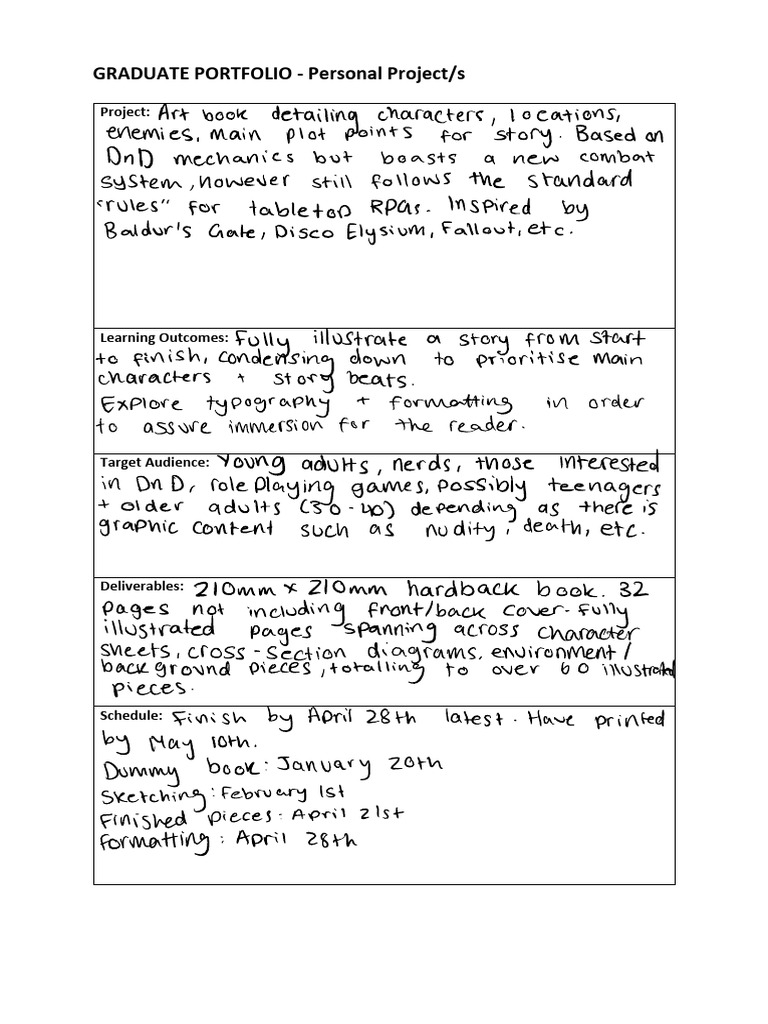 GRADUATE PORTFOLIO - Personal Project/s
Project: Art book detailing characters, locations,
enemies, main plot points for story. Based on
DnD mechanics but boasts a new combat
system, however still follows the standard
"rules" for tabletop RPGs. Inspired by
Baldur's Gate, Disco Elysium, Fallout, etc.
Learning Outcomes: Fully illustrate a story from start
to finish, condensing down to prioritise main
characters + story beats.
Explore typography + formatting in order
to assure immersion for the reader.
Target Audience: Young adults, nerds, those interested
in DnD, roleplaying games, possibly teenagers
+ older adults (30-40) depending as there is
graphic content such as nudity, death, etc.
Deliverables: 210mm x 210mm hardback book. 32
pages not including front/back cover. Fully
illustrated pages spanning across character
sheets, cross-section diagrams, environment/
background pieces, totalling to over 60 illustrated
pieces.
Schedule: Finish by April 28th latest. Have printed
by May 10th.
Dummy book: January 20th
Sketching: February 1st
Finished pieces: April 21st
Formatting: April 28th